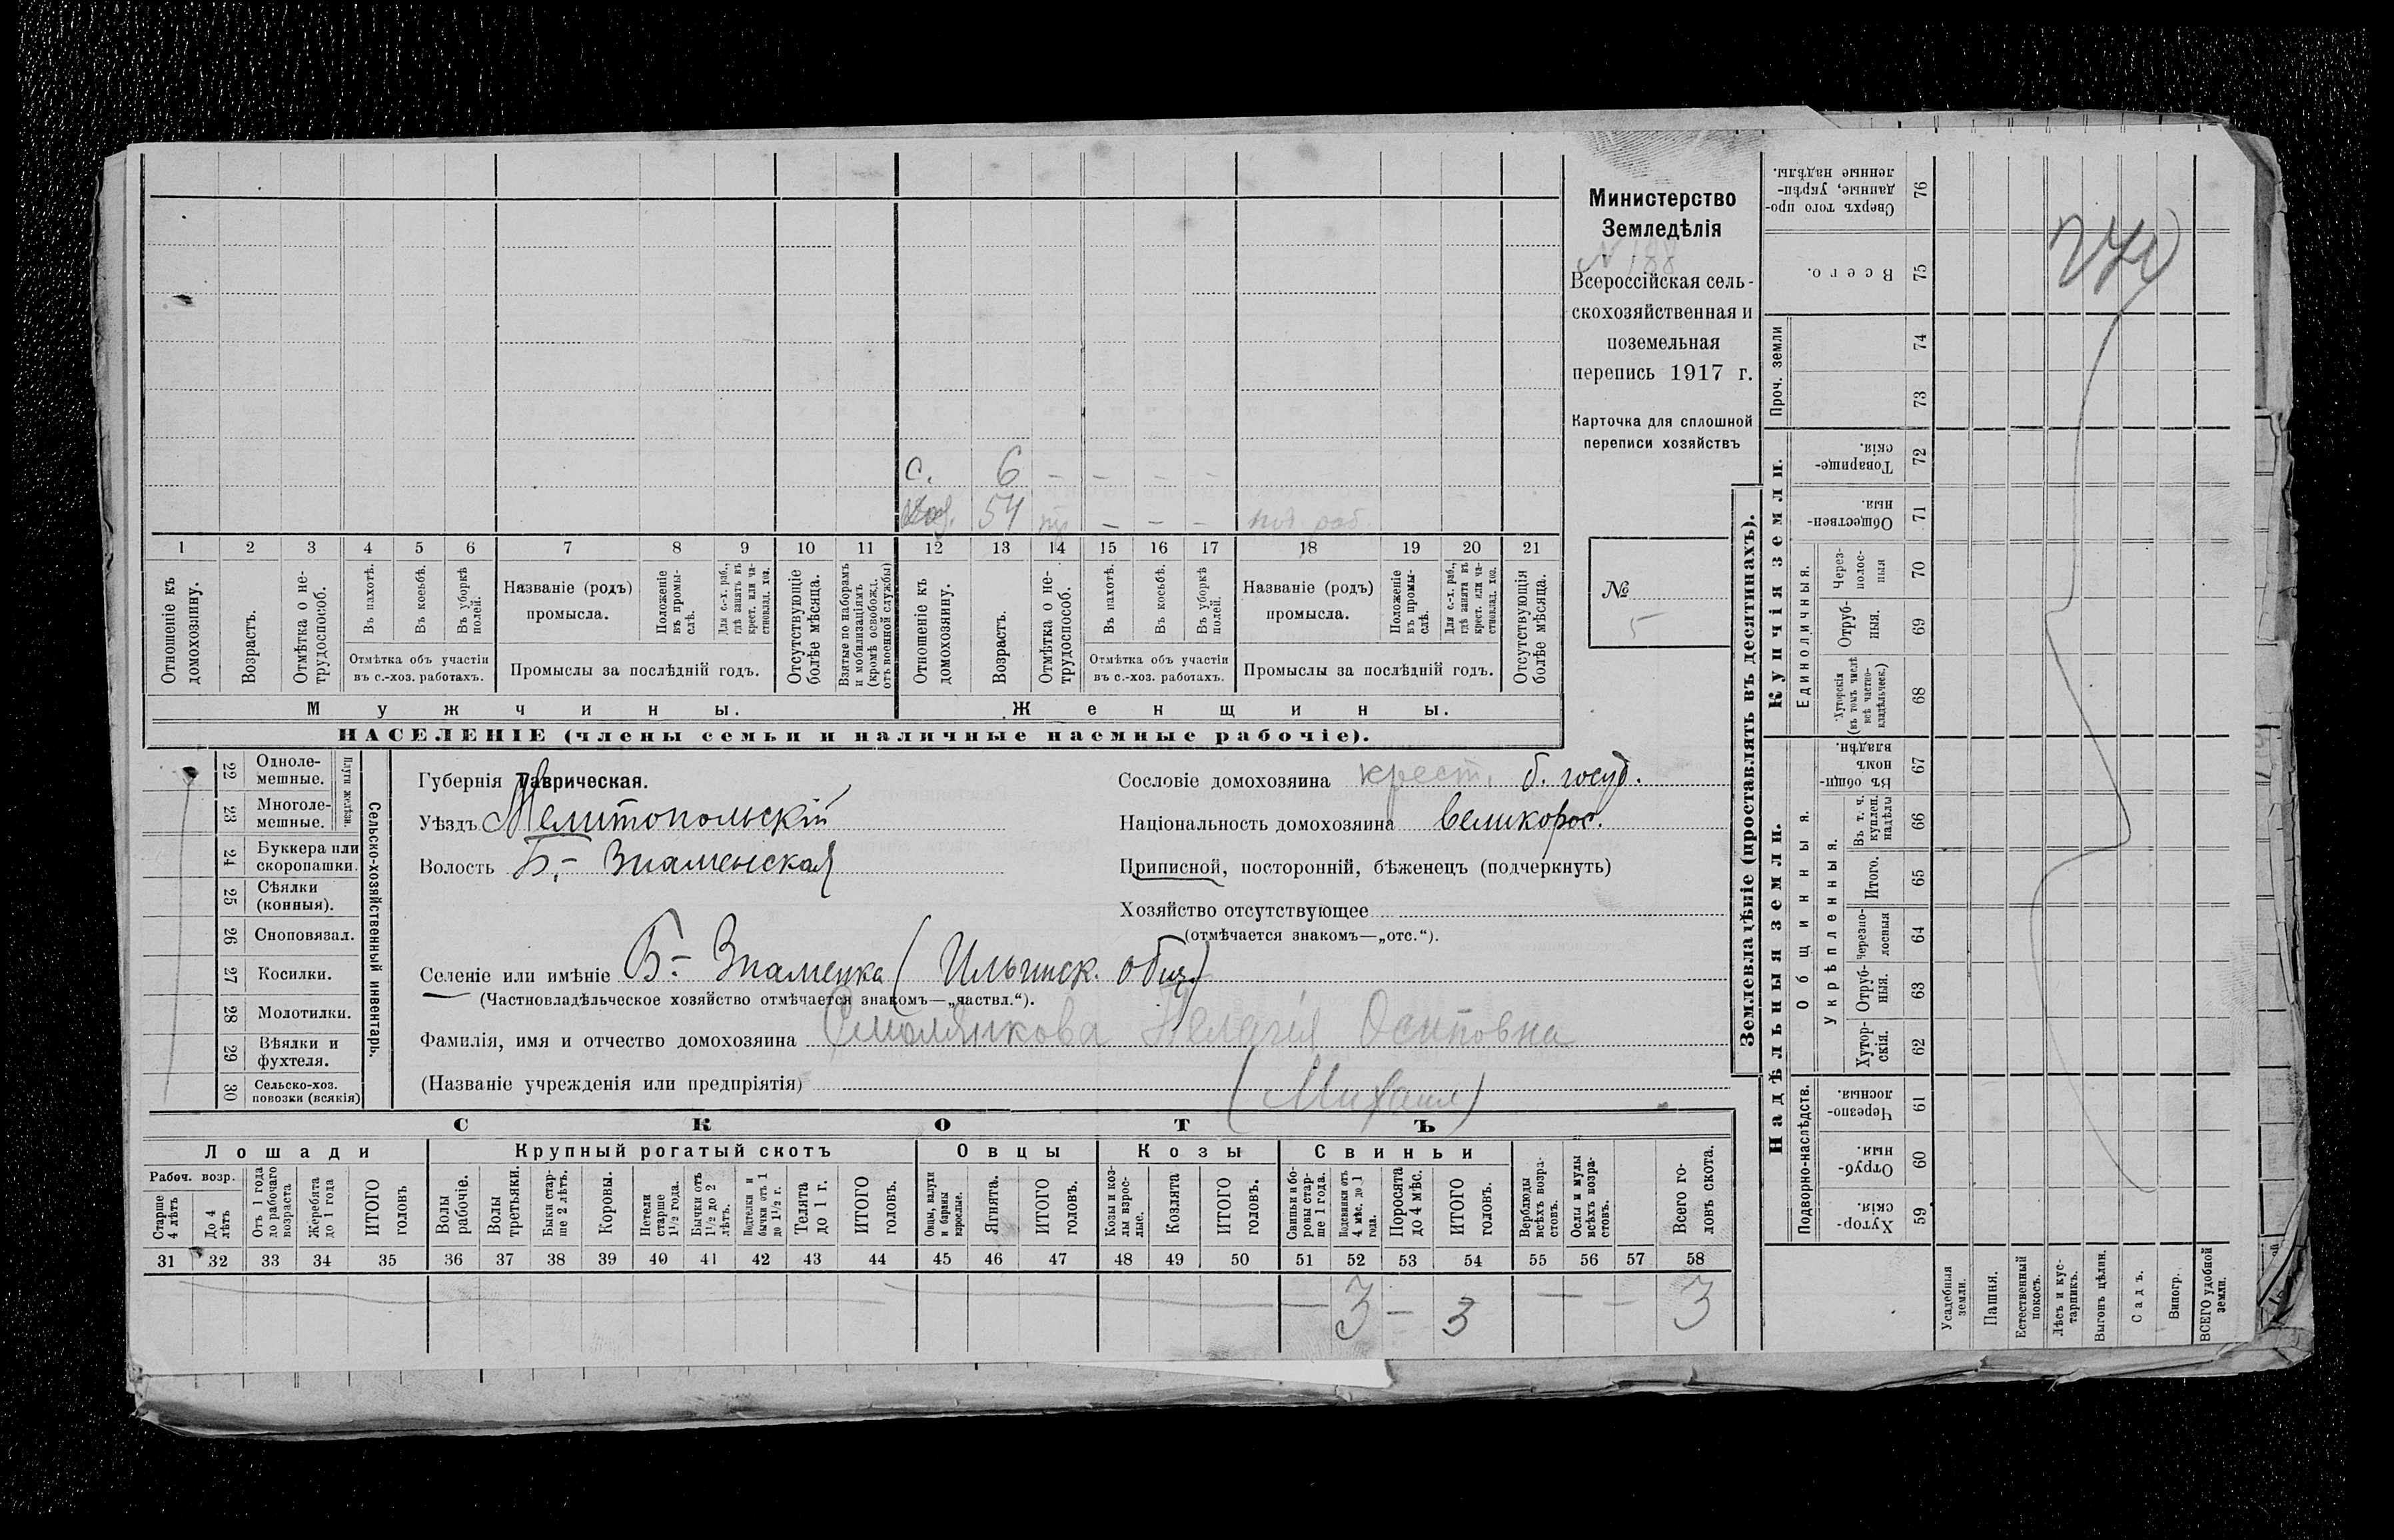 с. 6 — — — —
54 — — —
1 2 3 4 5 6 7 8 9 10 11 12 13 14 15 16 17 18 19 20 21
Отношеніе къ домохозяину.
Возрастъ.
Отмѣтка о не-
трудоспособ.
Въ пахотѣ.
Въ косьбѣ.
Въ уборкѣ полей.
Отмѣтка объ участіи
въ с.-хоз. работахъ.
Названіе (родъ)
промысла.
Положеніе въ промы-
слѣ.
Для с.-х. раб., гдѣ занятъ въ крест. или ча-
стновлад. хоз.
Промыслы за послѣдній годъ.
Отсутствующіе болѣе мѣсяца.
Взятые по наборамъ и мобилизаціямъ (кромѣ освобожд. отъ военной службы)
Отношеніе къ домохозяину.
Возрастъ.
Отмѣтка о не-
трудоспособ.
Въ пахотѣ.
Въ косьбѣ.
Въ уборкѣ полей.
Отмѣтка объ участіи
въ с.-хоз. работахъ.
Названіе (родъ)
промысла.
Положеніе въ промы-
слѣ.
Для с.-х. раб., гдѣ занятъ въ крест. или ча-
стновлад. хоз.
Промыслы за послѣдній годъ.
Отсутствующія болѣе мѣсяца.
Мужчины.
Женщины.
НАСЕЛЕНІЕ (члены семьи и наличные наемные рабочіе).
Министерство
Земледѣлія
N 188
Всероссійская сель-
скохозяйственная и
поземельная
перепись 1917 г.
Карточка для сплошной
переписи хозяйствъ
№
5
22 Одноле-
мешные.
23 Многоле-
мешные.
Плуги желѣзн.
24 Буккера или
скоропашки.
25 Сѣялки
(конныя).
26 Сноповязал.
27 Косилки.
28 Молотилки.
29 Вѣялки и
фухтеля.
30 Сельско-хоз.
повозки (всякія)
Сельско-хозяйственный инвентарь.
Губернія Таврическая.
Уѣздъ Мелитопольскій
Волость Б.- Знаменская
Сословіе домохозяина крест. б. госуд.
Національность домохозяина великорос.
Приписной, посторонній, бѣженецъ (подчеркнуть)
Хозяйство отсутствующее
(отмѣчается знакомъ—„отс.“).
Селеніе или имѣніе Б.- Знаменка (Ильинск. общ.)
(Частновладѣльческое хозяйство отмѣчается знакомъ—„частвл.“).
Фамилія, имя и отчество домохозяина Смолянкова Пелагія Осиповна
(Названіе учрежденія или предпріятія)
(Михаил)
СКОТЪ
Лошади
Крупный рогатый скотъ
Овцы
Козы
Свиньи
Рабоч. возр.
Старше 4 лѣтъ
До 4 лѣтъ
Отъ 1 года до рабочаго возраста
Жеребята до 1 года
ИТОГО головъ
Волы рабочіе.
Волы третьяки.
Быки стар-
ше 2 лѣтъ.
Коровы.
Нетели старше 1½ года.
Бычки отъ 1½ до 2 лѣтъ.
Подтелки и бычки отъ 1 до 1½ г.
Телята до 1 г.
ИТОГО головъ.
Овцы, валухи и бараны взрослые.
Ягнята.
ИТОГО головъ.
Козы и коз-
лы взрос-
лые.
Козлята
ИТОГО головъ.
Свиньи и бо-
ровы стар-
ше 1 года.
Подсвинки отъ 4 мѣс. до 1 года.
Поросята до 4 мѣс.
ИТОГО головъ.
Верблюды всѣхъ возра-
стовъ.
Ослы и мулы всѣхъ возра-
стовъ.
Всего го-
ловъ скота.
31 32 33 34 35 36 37 38 39 40 41 42 43 44 45 46 47 48 49 50 51 52 53 54 55 56 57 58
3 — 3 — — 3
Землевладѣніе (проставлять въ десятинахъ).
Надѣльныя земли.
Купчія земли.
Проч. земли
Подворно-наслѣдств.
Общинныя.
Укрѣпленныя.
Единоличныя.
Сверхъ того про-
данные, укрѣп-
ленные надѣлы.
76
Всего.
75
74
73
Товарище-
скія.
72
Обществен-
ныя.
71
Через-
полос-
ныя
70
Отруб-
ныя.
69
Хуторскія (въ томъ числѣ всѣ частно-
владѣльческ.)
68
Въ общин-
номъ владѣн.
67
Въ т. ч. куплен. надѣлы
66
Итого.
65
Черезпо-
лосныя
64
Отруб-
ныя.
63
Хутор-
скія.
62
Черезпо-
лосныя.
61
Отруб-
ныя.
60
Хутор-
скія.
59
Усадебныя земли.
Пашня.
Естественный покосъ.
Лѣсъ и кус-
тарникъ.
Выгонъ цѣлин.
Садъ.
Виногр.
ВСЕГО удобной земли.